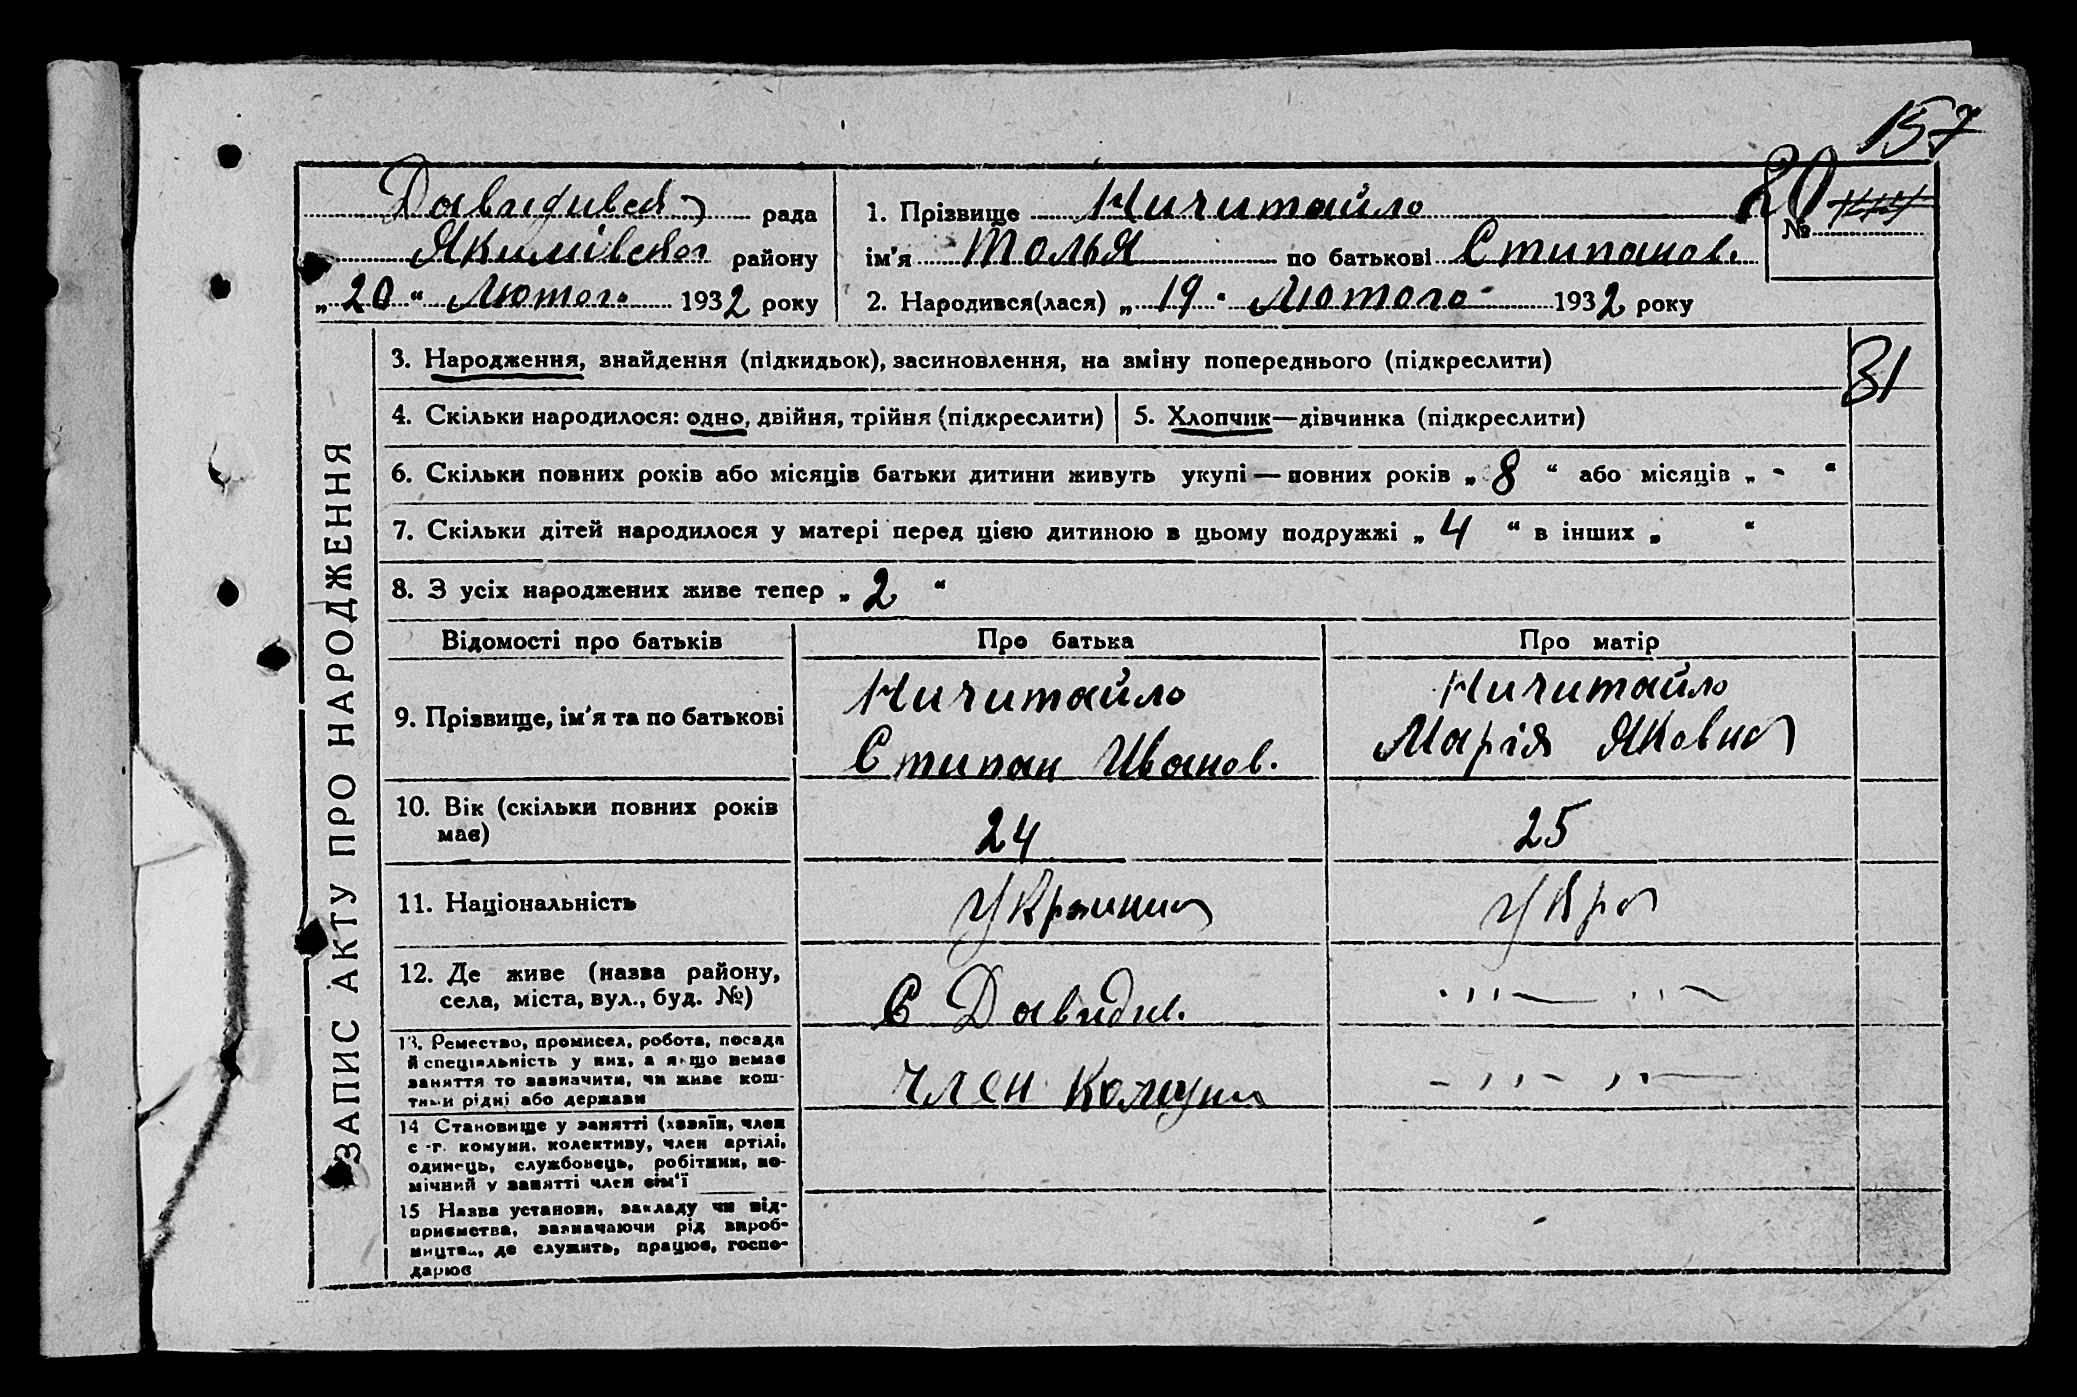 157
Давидивська рада
Якимівського району
„ 20 “ Лютого 1932 року
1. Прізвище Ничитайло
ім'я Толья по батькові Стипанов.
2. Народився(лася) „ 19 “ Лютого 1932 року
20
№
ЗАПИС АКТУ ПРО НАРОДЖЕННЯ
3. Народження, знайдення (підкидьок), засиновлення, на зміну попереднього (підкреслити)
31
4. Скільки народилося: одно, двійня, трійня (підкреслити)
5. Хлопчик—дівчинка (підкреслити)
6. Скільки повних років або місяців батьки дитини живуть укупі — повних років „ 8 “ або місяців „ - “
7. Скільки дітей народилося у матері перед цією дитиною в цьому подружжі „ 4 “ в інших „ “
8. З усіх народжених живе тепер „ 2 “
Відомості про батьків
Про батька
Про матір
9. Прізвище, ім'я та по батькові
Ничитайло
Стипан Иванов.
Ничитайло
Марія Яковна
10. Вік (скільки повних років
має)
24
25
11. Національність
Украинца
Укра
12. Де живе (назва району,
села, міста, вул., буд. №)
С Давидив.
13. Ремество, промисел, робота, посада
й спеціяльність у них, а якщо немає
заняття то зазначити, чи живе кош-
тами рідні або держави
член комуни
14 Становище у занятті (хазяїн, член
с.-г. комуни, колективу, член артілі,
одинець, службовець, робітник, по-
мічний у занятті член сім'ї
15 Назва установи, закладу чи під-
приємства, зазначаючи рід вироб-
ництва, де служить, працює, госпо-
дарює